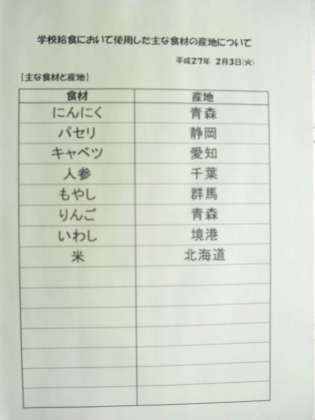 学校給食において使用した主な食材の産地について
平成27年 2月3日(火)
【主な食材と産地】
食材 産地
にんにく 青森
パセリ 静岡
キャベツ 愛知
人参 千葉
もやし 群馬
りんご 青森
いわし 境港
米 北海道